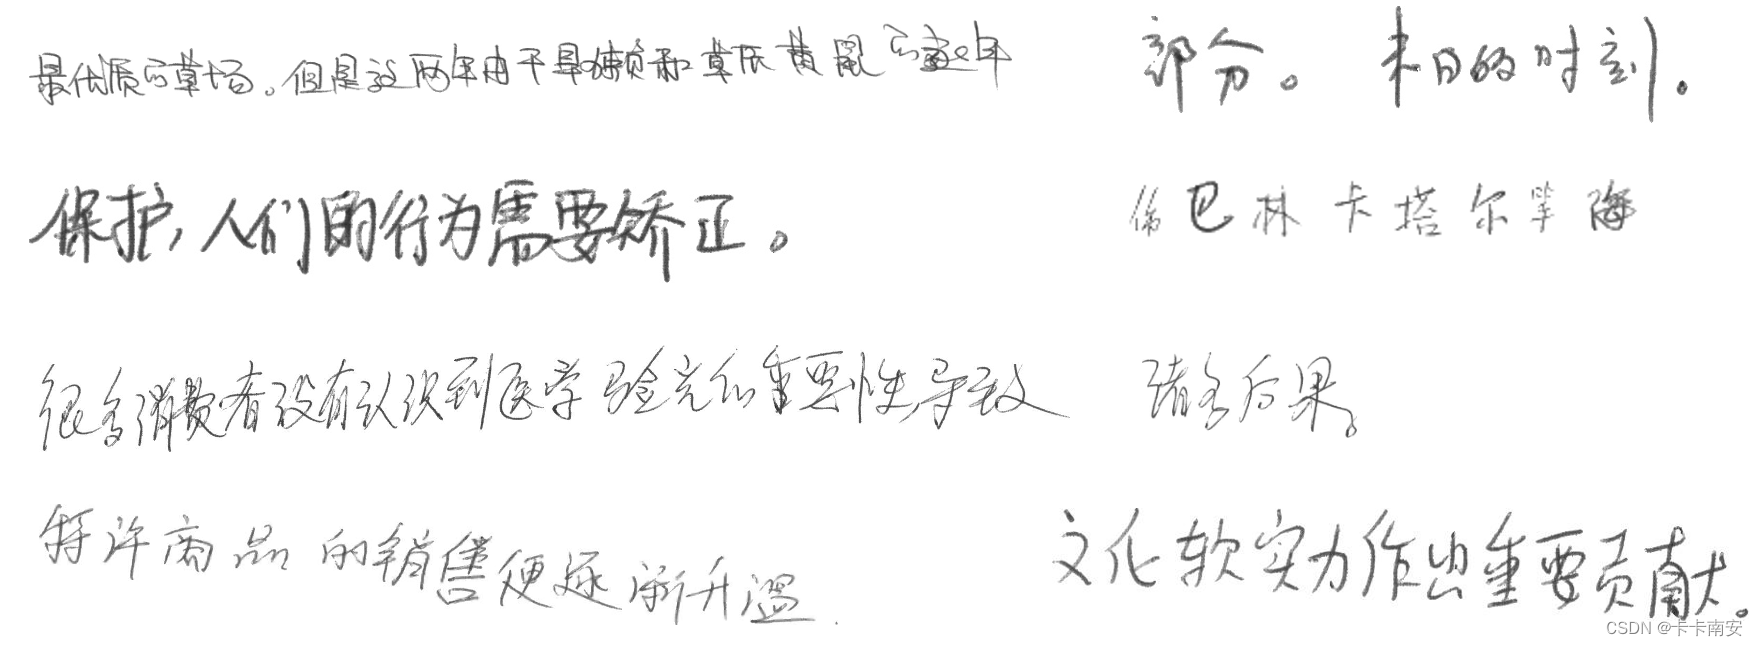 最优质的草场。但是这两年由于旱獭和草原黄鼠的逐年
部分。
末日的时刻.
保护,人们的行为需要矫正。
巴林卡塔尔
很多消费者没有认识到医学验光的重要性,导致
诸多后果。
特许商品的销售便逐渐升温.
文化软实力作出重要贡献。
CSDN @卡卡南安